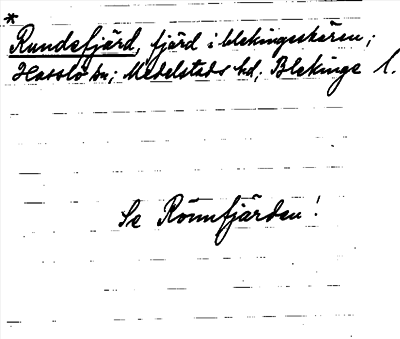 *
Rundefjärd, fjärd i blekingeskären;
Hasslö sn; Medelstads hd; Blekinge l.
Se Rönnfjärden!